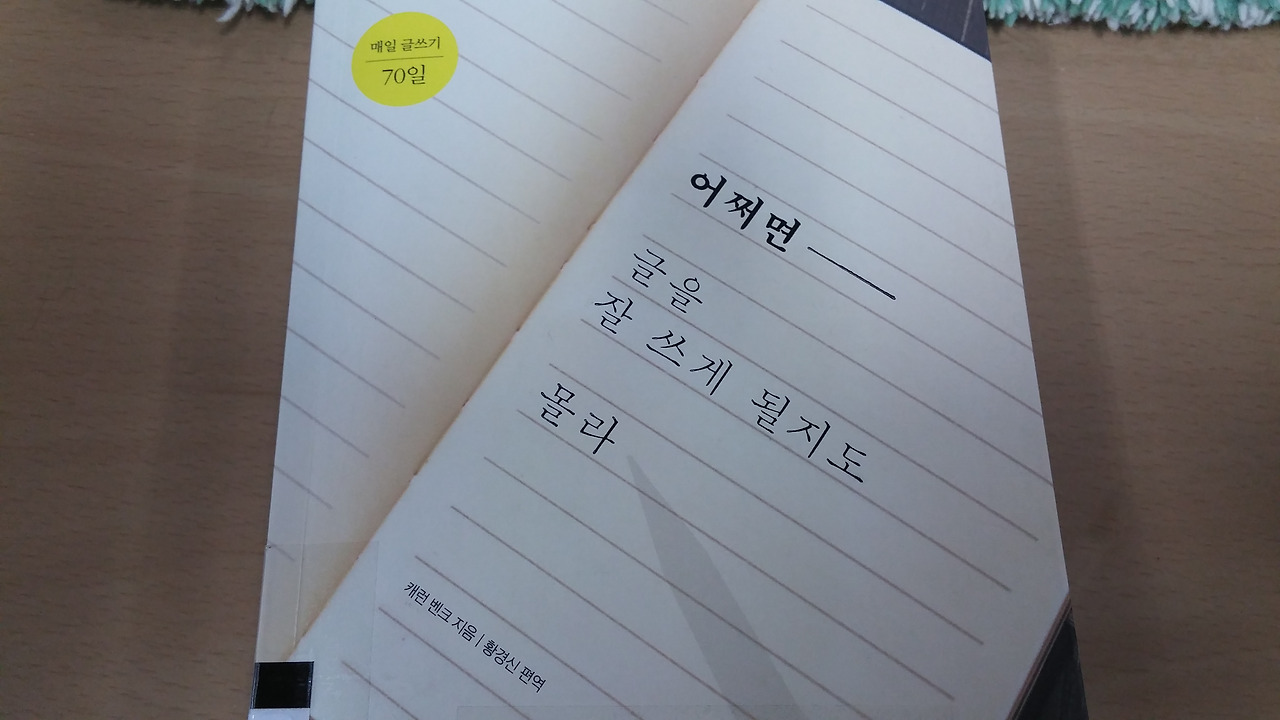 매일 글쓰기
70일
어쩌면
글을
잘 쓰게 될지도
몰라
캐런 벤크 지음 | 황경신 편역